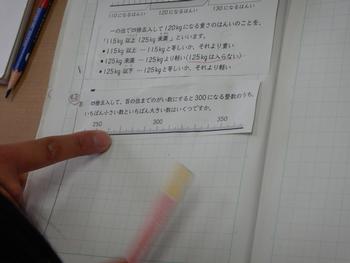 (10になるはんい)
(120になるはんい)
(130になるはんい)
一の位で四捨五入して120kgになる重さのはんいのことを、
「115kg以上125kg未満」といいます。
●115kg以上…115kgと等しいか、それより重い
●125kg未満…125kgより軽い(125kgは入らない)
●125kg以下…125kgと等しいか、それより軽い
四捨五入して、百の位までのがい数にすると300になる整数のうち、
いちばん小さい数といちばん大きい数はいくつですか。
250 300 350